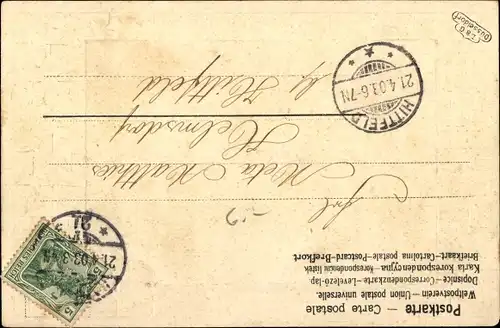 Postkarte – Carte postale
Weltpostverein – Union postale universelle.
Dopisnice – Correspondenzkarte – Levelező-lap
Karta korespondencyjna – Korespondenční lístek
Briefkaart – Cartolina postale – Postcard – Brefkort
Frl.
Meta Matthies
Helmsdorf
Hittfeld
HITTFELD
21.4.03.6-7N
21.4.03.3-4N
5
Düsseldorf